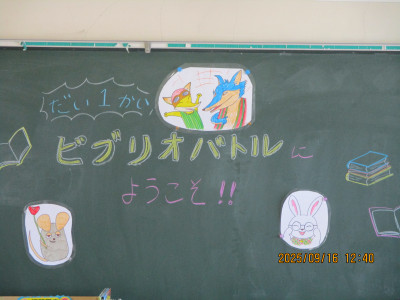 だい1かい
ビブリオバトルに
ようこそ!!
2025/09/16 12:40